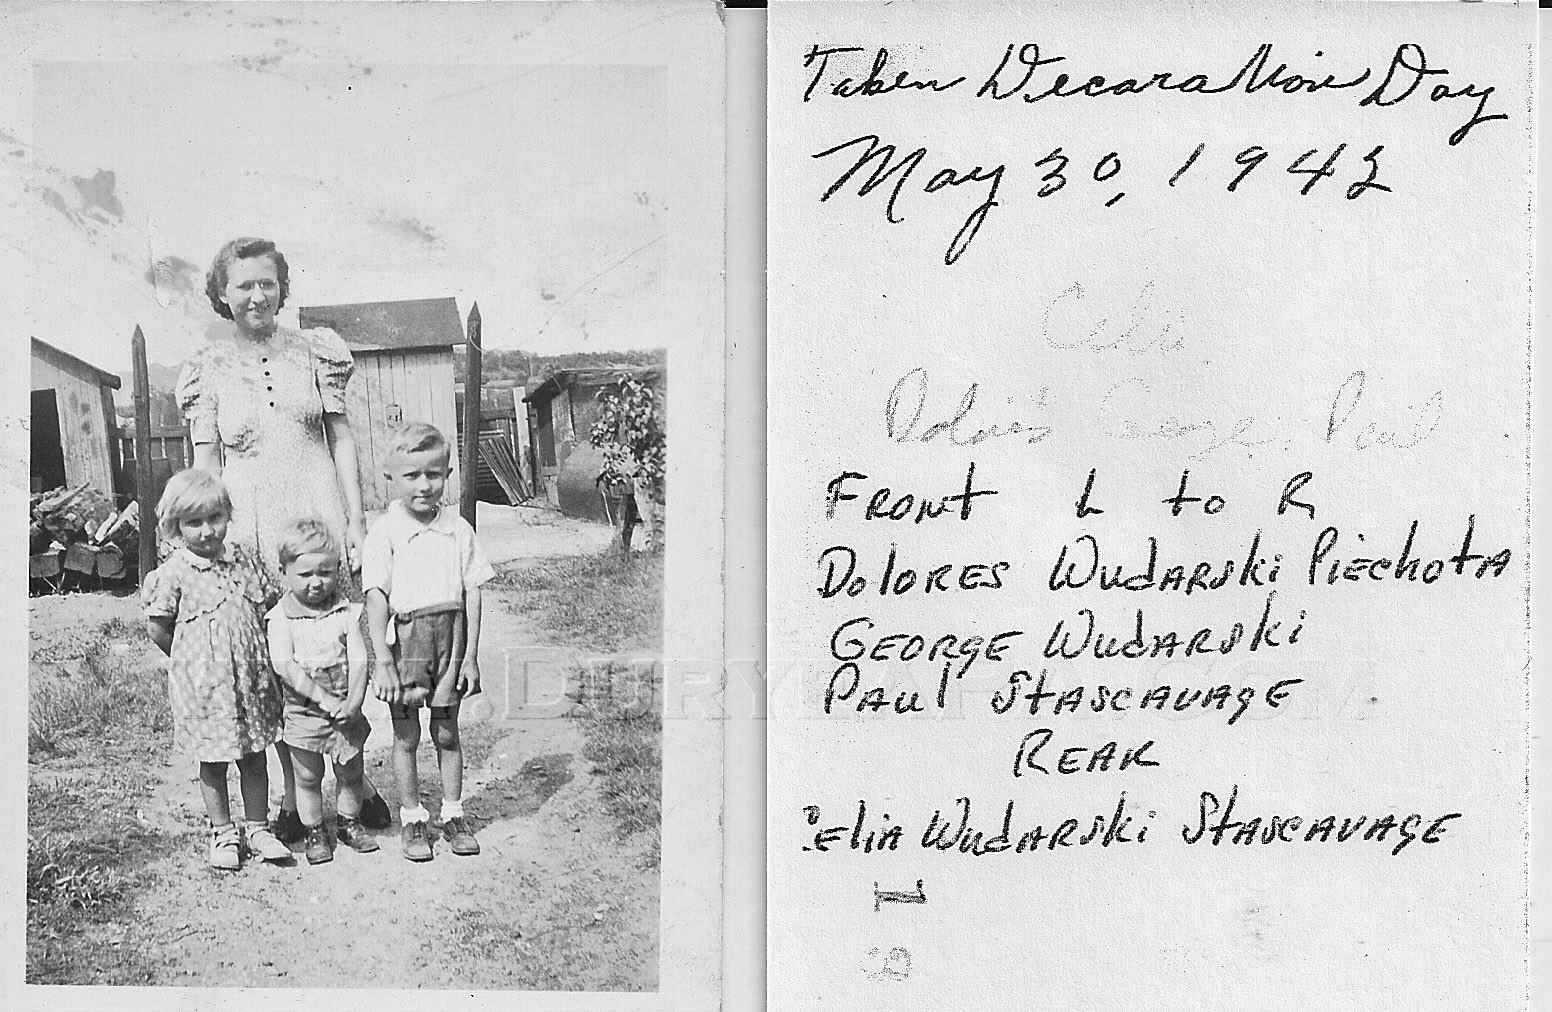 Taken Decoration Day
May 30, 1942
Celia
Dolores George, Paul
FRONT L to R
DolORES WudARSki PiEchotA
GEORgE WudARSki
PAul StASCAVAgE
REAR
CEliA WudARSki StASCAVAgE
WWW.DURYEAPA.COM